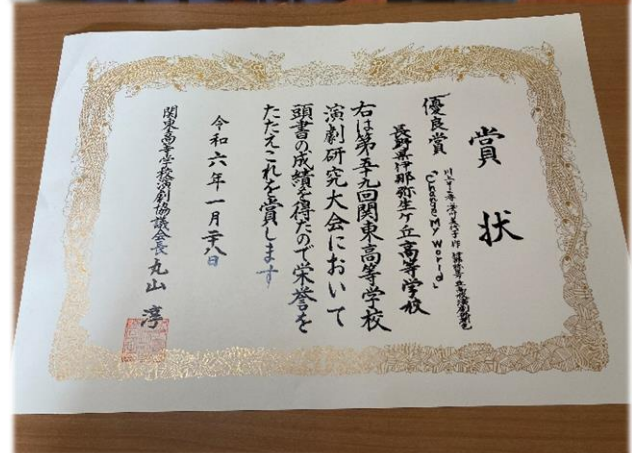 賞状
優良賞
「Change My World」
長野県伊那弥生ケ丘高等学校
右は第五十九回関東高等学校
演劇研究大会において
頭書の成績を得たので栄誉を
たたえこれを賞します
令和六年一月二十八日
関東高等学校演劇協議会長 丸山 淳